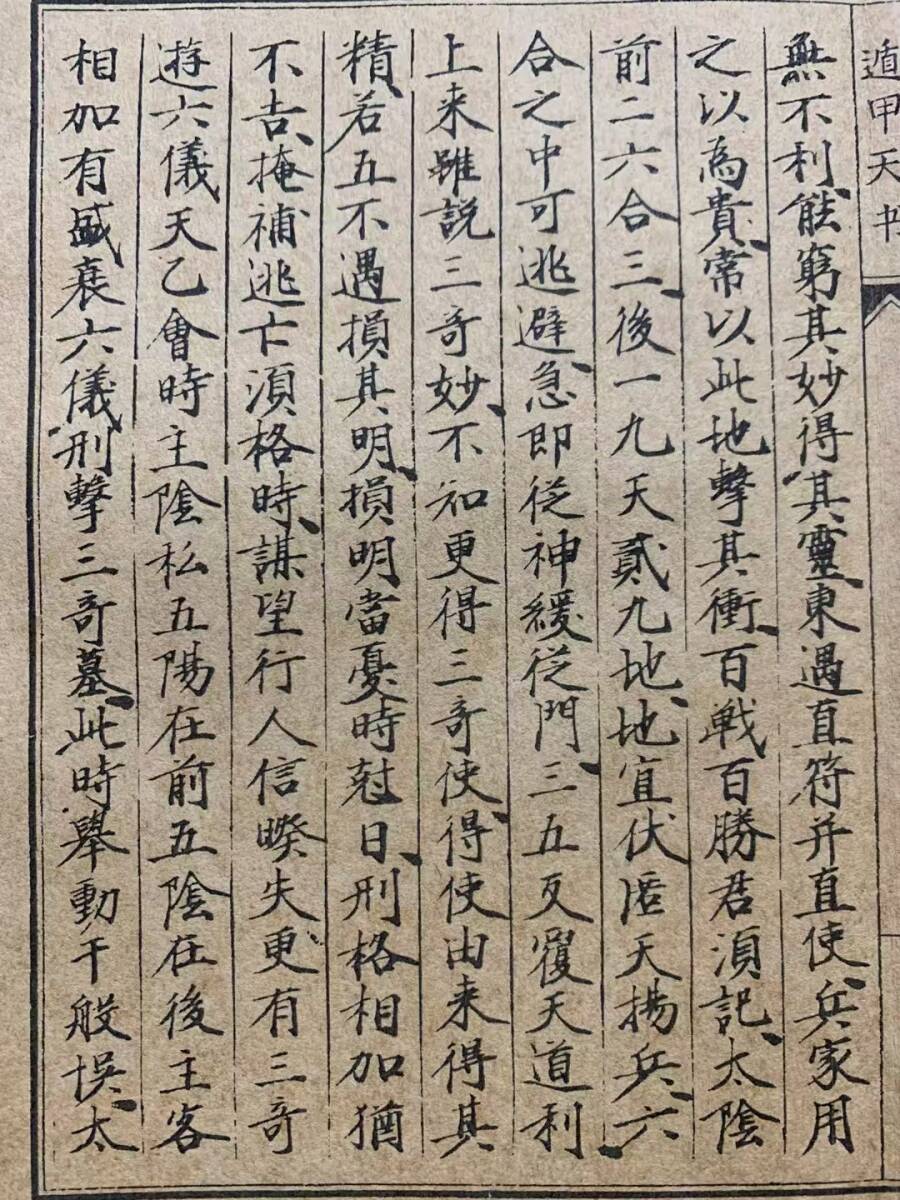 遁甲天书
無不利、能窮其妙得其靈、東遇直符并直使、兵家用
之以為貴、常以此地擊其衝、百戦百勝君須記、太陰
前二六合三、後一九天貳九地、地宜伏匿天揚兵、六
合之中可逃避、急即従神緩従門、三五反覆天道利
上来雖説三奇妙、不知更得三奇使、得使由来得其
精、若五不遇損其明、損明當憂時尅日、刑格相加猶
不吉、掩補逃亡須格時、謀望行人信暌失更有三奇
遊六儀天乙會時主陰私五陽在前五陰在後主客
相加有盛衰六儀刑擊三奇墓、此時舉動千般悞、太